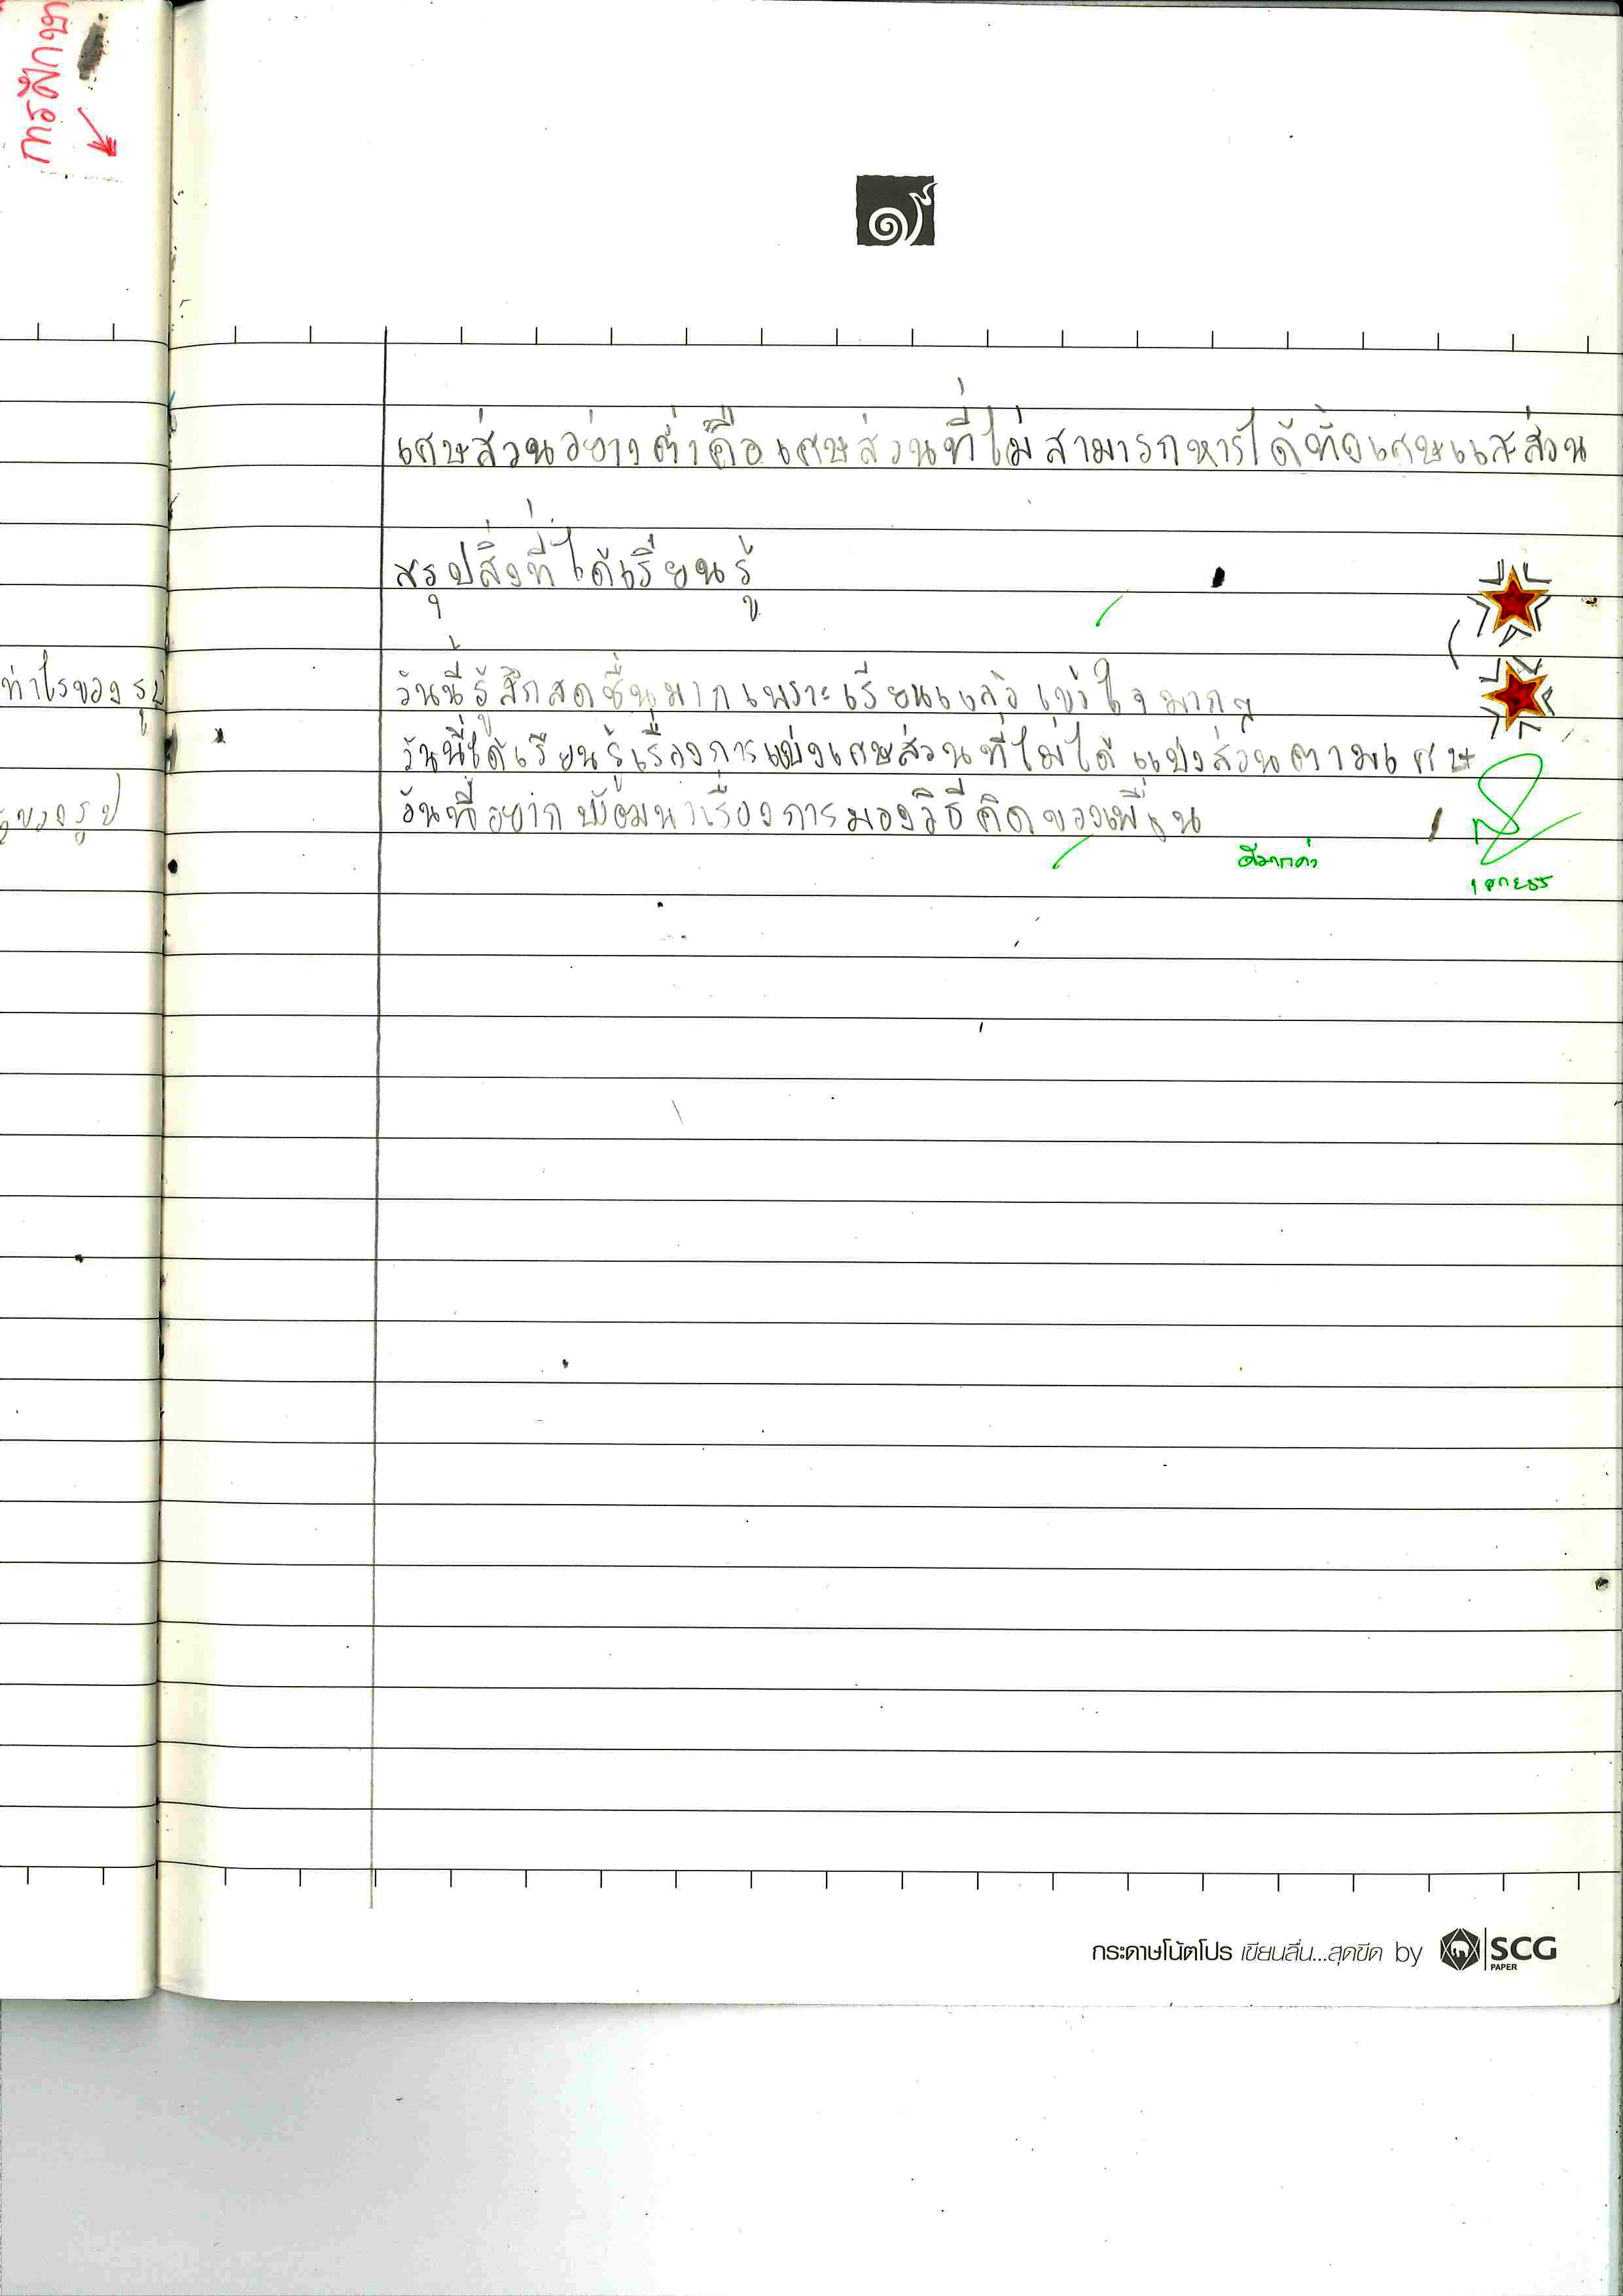 การฝึกหัด
เศษส่วนอย่างต่ำคือเศษส่วนที่ไม่สามารถหารได้ทั้งเศษและส่วน
สรุปสิ่งที่ได้เรียนรู้
ท่าไรของรูป
วันนี้รู้สึกสดชื่นมากเพราะเรียนแล้วเข้าใจมากๆ
วันนี้ได้เรียนรู้เรื่องการแบ่งเศษส่วนที่ไม่ได้แบ่งส่วนตามเศษ
ของรูป
วันนี้อยากพัฒนาเรื่องการมองวิธีคิดของเพื่อน
ดีมากค่ะ
กระดาษโน้ตโปร เขียนลื่น...สุดขีด by SCG
PAPER